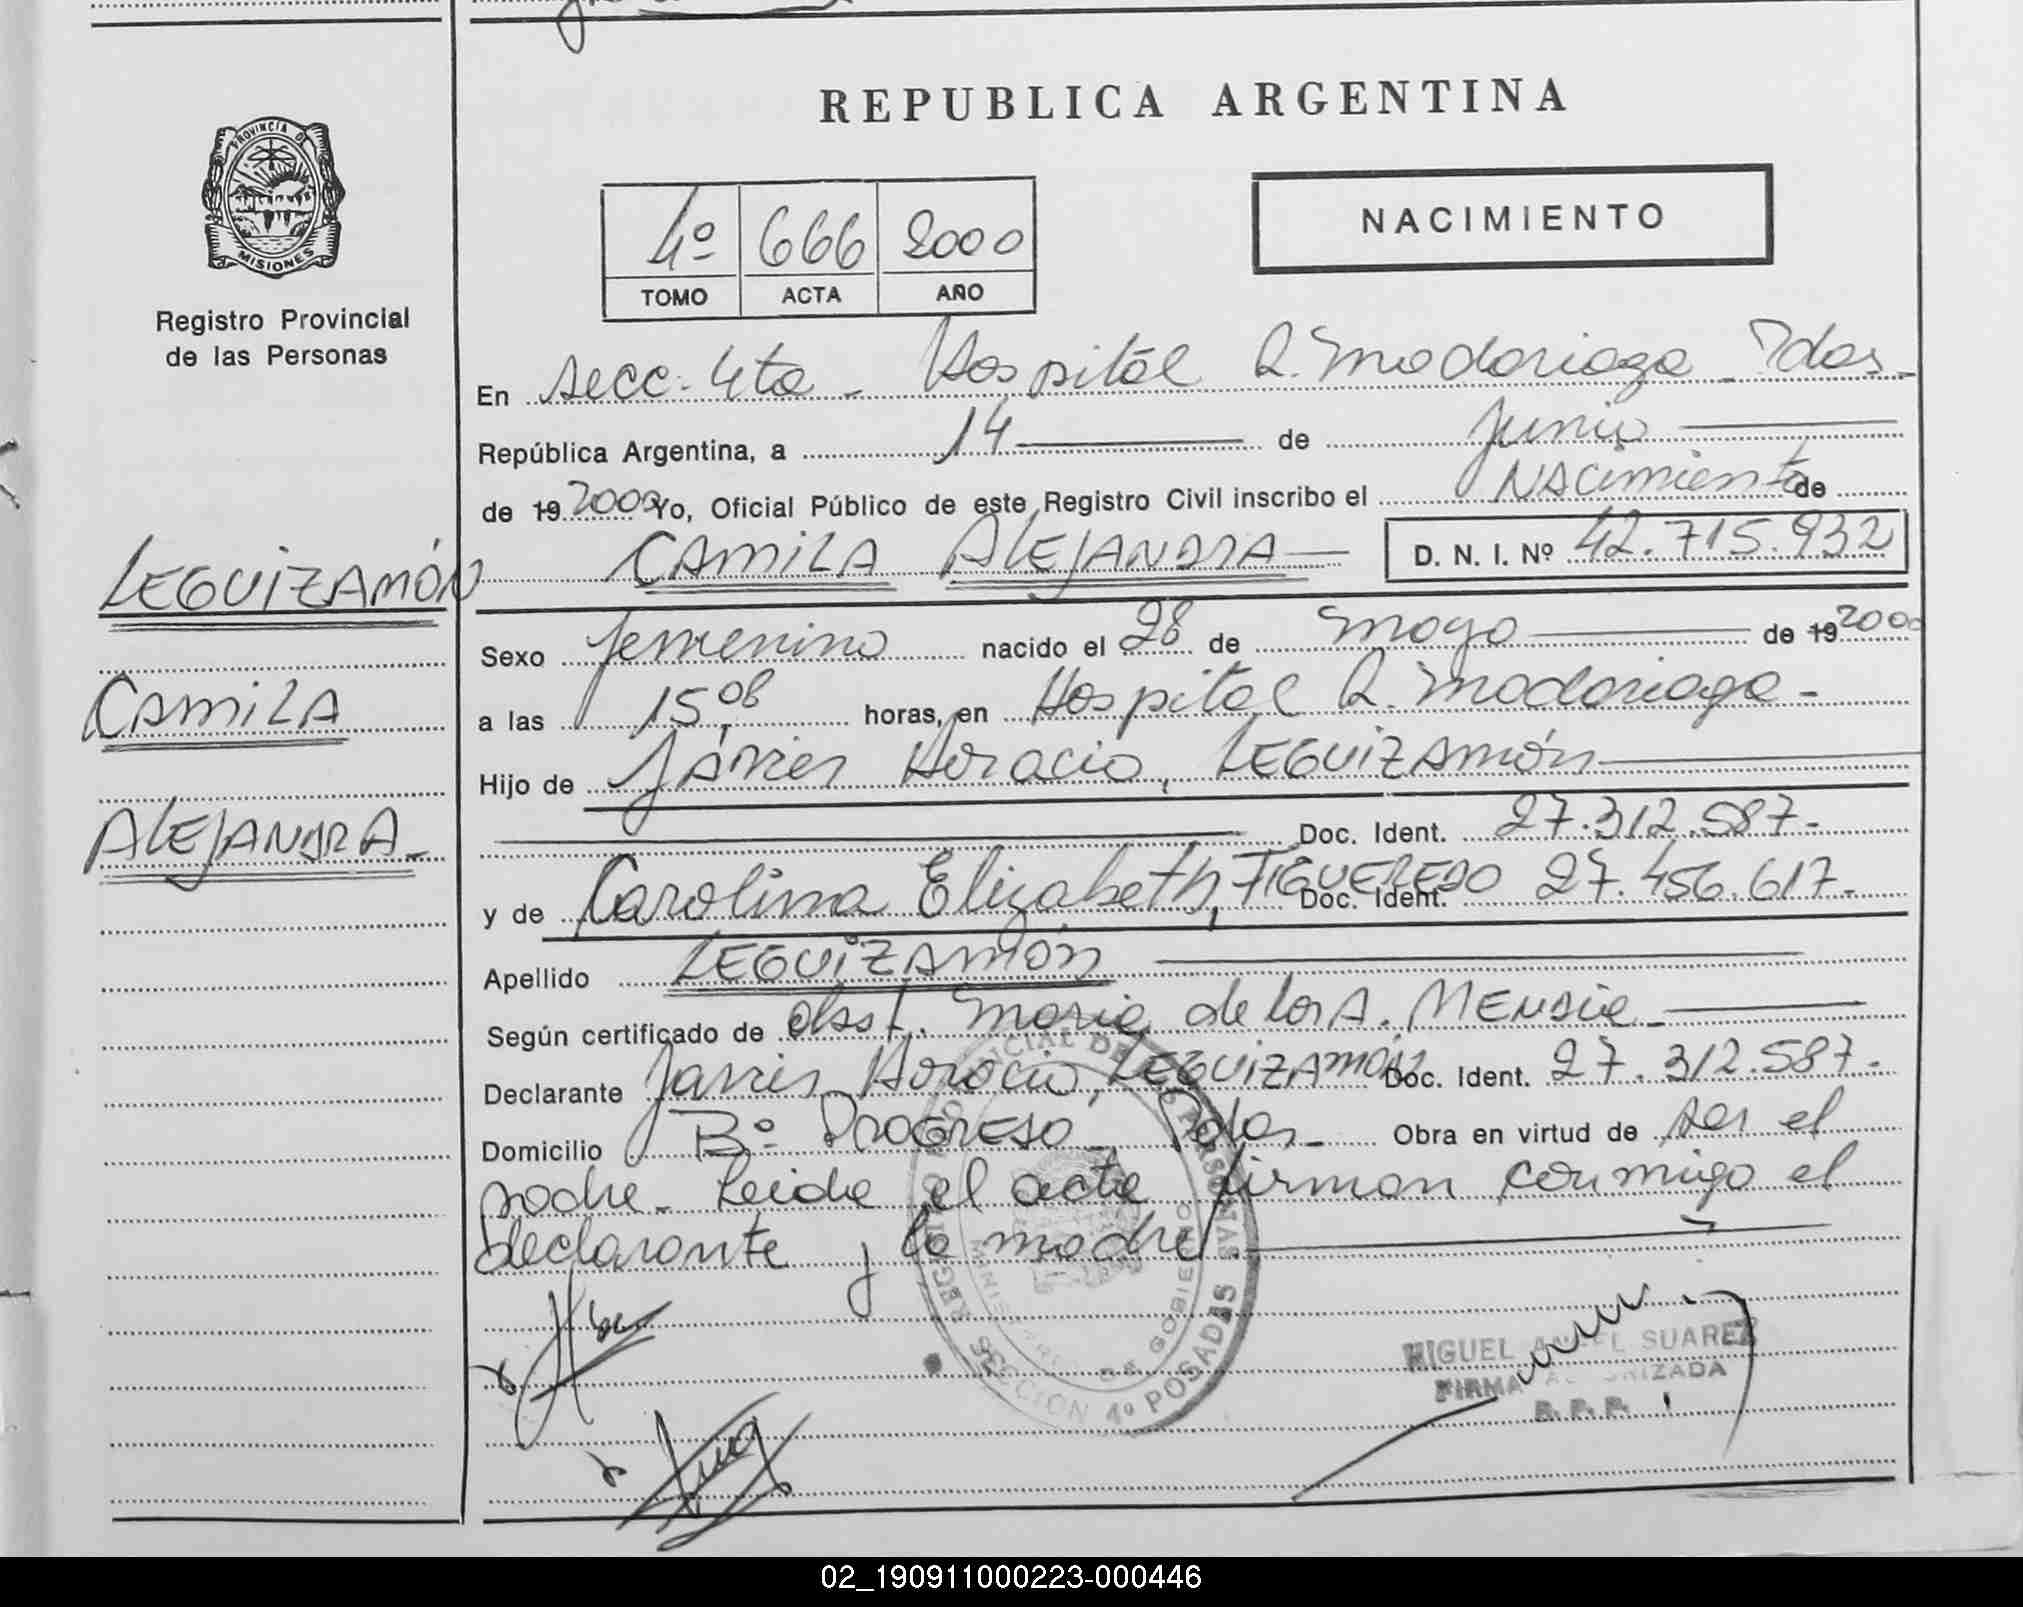 REPUBLICA ARGENTINA
PROVINCIA DE
MISIONES
Registro Provincial
de las Personas
NACIMIENTO
4º 666 2000
TOMO ACTA AÑO
En secc. 4ta - Hospital R. Madariaga - Pdas -
República Argentina, a 14 de Junio
de 19 2000 Yo, Oficial Público de este Registro Civil inscribo el NAcimiento de
CAMILA ALEJANDRA D. N. I. Nº 42.715.932
LEGUIZAMÓN
CAMILA
ALEJANDRA -
Sexo femenino nacido el 28 de mayo de 19 2000
a las 15,08 horas, en Hospital R. Madariaga -
Hijo de Javier Horacio, LEGUIZAMÓN
Doc. Ident. 27.312.587.-
y de Carolina Elizabeth, FIGUEREDO Doc. Ident. 27.456.617.-
Apellido LEGUIZAMÓN
Según certificado de Obst. Maria de los A.
Declarante Javier Horacio, LEGUIZAMÓN Doc. Ident. 27.312.587.-
Domicilio Bº PROGRESO - Pdas - Obra en virtud de ser el
padre - Leida el acta firman conmigo el
declarante y la madre.
REGISTRO PROVINCIAL DE LAS PERSONAS
MINISTERIO DE GOBIERNO
SECCION 4º POSADAS
MIGUEL ANGEL SUAREZ
FIRMA AUTORIZADA
R. P. P.
02_190911000223-000446